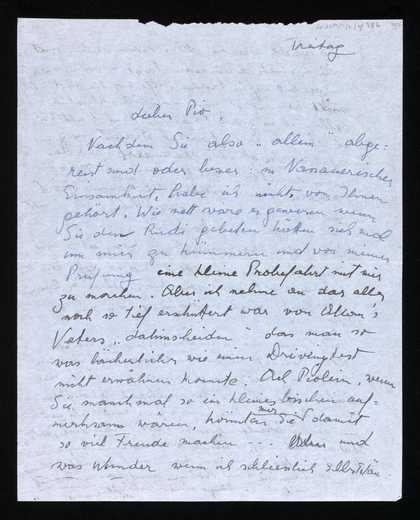 Freitag
Lieber Pio,
Nachdem Sie also "allein" abge=
reist sind oder besser: in Vassauerischer
Einsamkeit, habe ich nichts von Ihnen
gehört. Wie nett wäre es gewesen wenn
Sie den Rudi gebeten hätten sich mal
um mich zu kümmern und vor meiner
Prüfung eine kleine Probefahrt mit mir
zu machen. Aber ich nehme an das alles
noch so tief erschüttert war von
Vaters "dahinscheiden" das man so
was lächerliches wie einen Drivingtest
nicht erwähnen konnte. Ach Piolein, wenn
Sie manchmal so ein kleines bischen auf-
merksam wären, könnten Sie mir damit
so viel Freude machen ... und
was Wunder wenn ich schliesslich